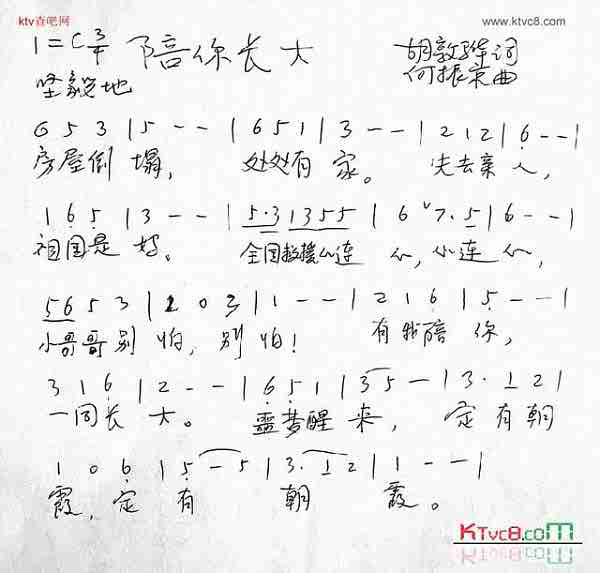 ktv查吧网
www.ktvc8.com
1=C 3/4 陪你长大 胡敦骅词
坚毅地 何振京曲
6 5 3 | 5 - - | 6 5 1 | 3 - - | 2 1 2 | 6 - - |
房屋倒塌， 处处有家。 失去亲人，
1 6 5 | 3 - - | 5·3 1355 | 6 ˅7·5 | 6 - - |
祖国是妈。 全国救援心连心，心连心，
56 5 3 | 2 0 3 | 1 - - | 2 1 6 | 5 - - |
小哥哥别怕，别怕！ 有我陪你，
3 1 6 | 2 - - | 6 5 1 | 3 5 - | 3· 1 2 |
一同长大。 噩梦醒来， 定有朝
1 0 6 | 5 - 5 | 3· 1 2 | 1 - - |
霞，定有朝霞。
KTvc8.com